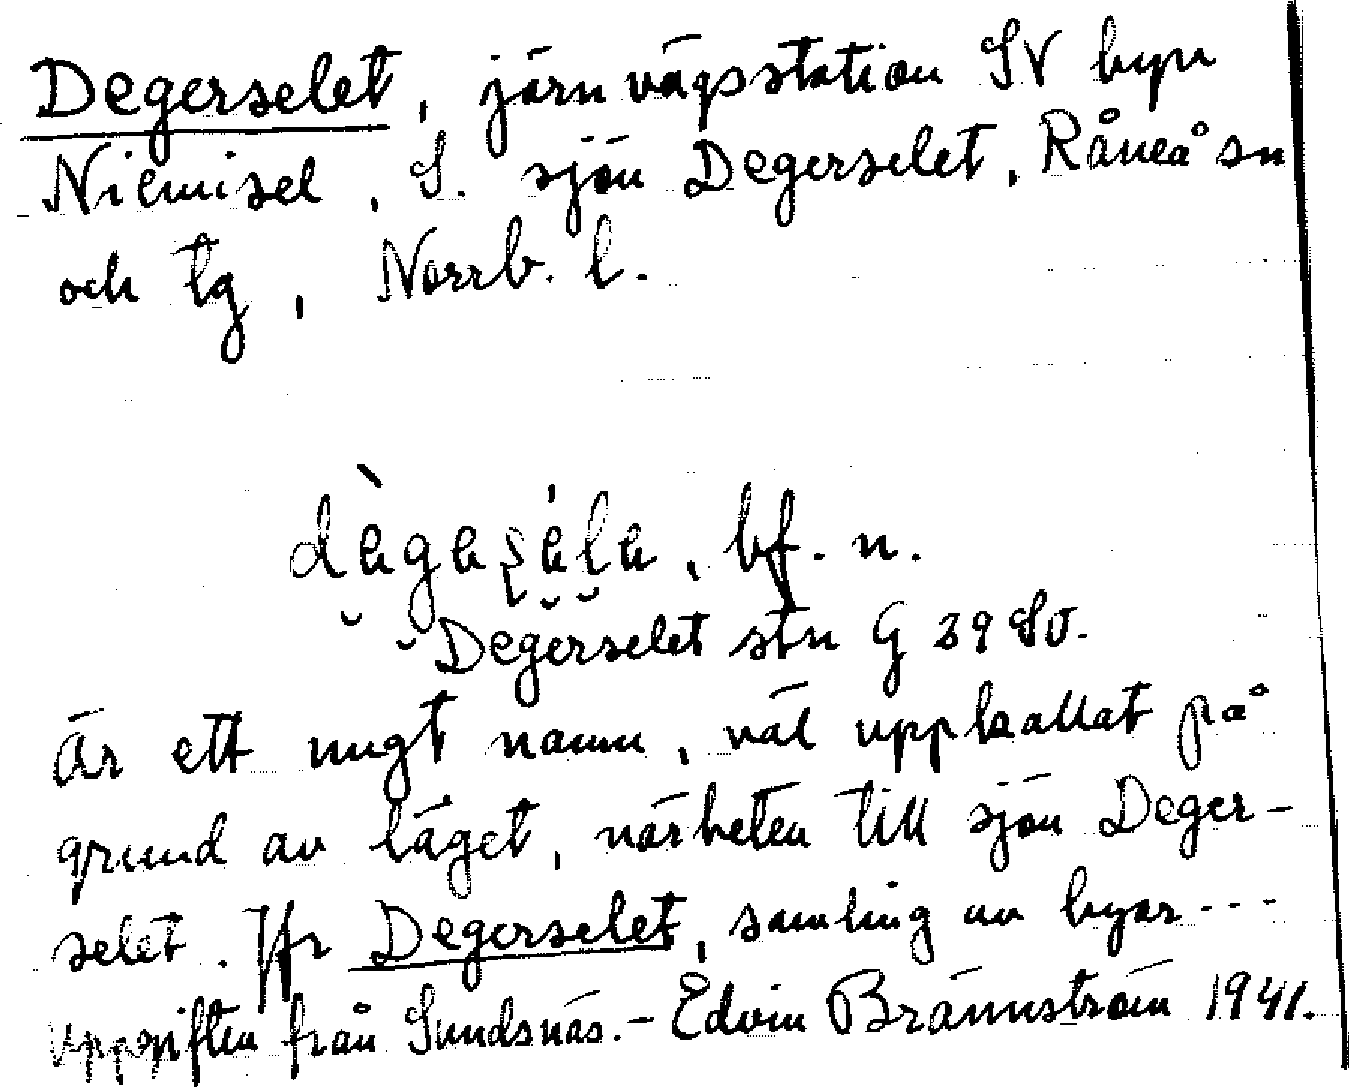 Degerselet, järnvägsstation SV byn
Niemisel, S. sjön Degerselet, Råneå sn
och tg, Norrb. l.
bf. n.
Degerselet stn G 39 SV.
Är ett nygt namn, väl uppkallat på
grund av läget, närheten till sjön Deger-
selet. Jfr Degerselet, samling av byar ---
Uppgiften från Sundsnäs. - Edvin Brännström 1941.